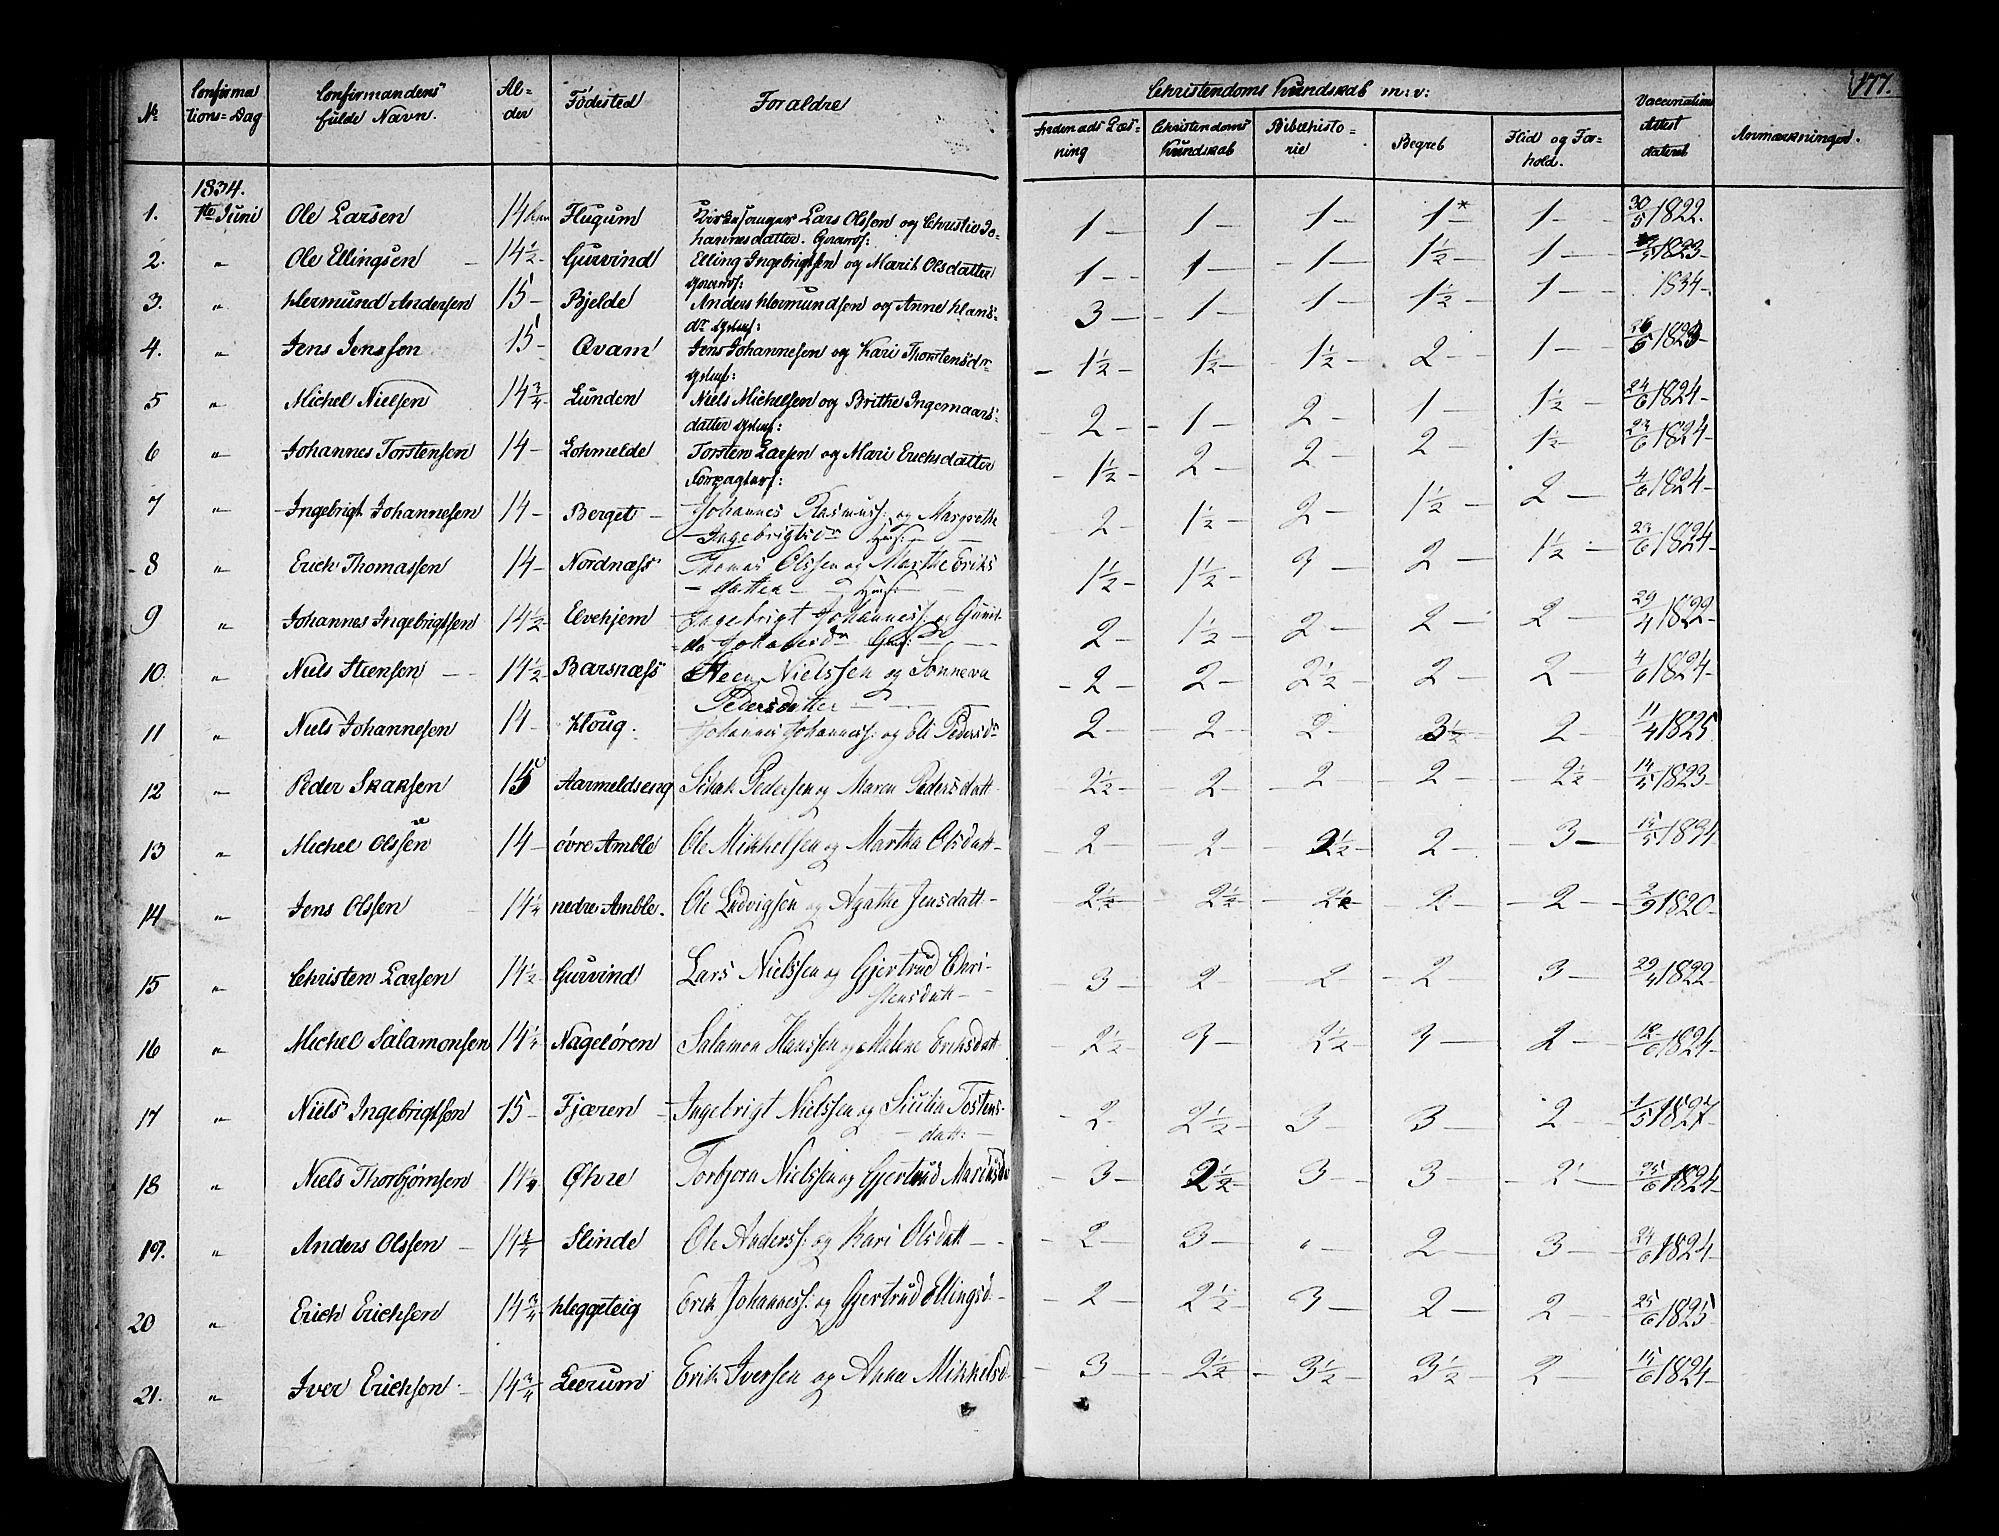 177.
No
Confirmations=Dag
Confirmandens fulde Navn.
Alder
Födested
Foraldre
Christendoms Kundskab m: v:
Indenads Læsning
Christendoms Kundskab
Bibelhistorie
Begreb
Flid og Forhold.
Vaccination Attest dateret
Anmærkninger.
1834.
1. 1te Juni Ole Larsen 14 Flugum Kirkesanger Lars Olssen og Christie Johannesdatter. Gaards: 1 — 1 — 1 — 1* — 1 — 30/5 1822.
2. " Ole Ellingsen 14½ Gurvind Elling Ingebrigtsen og Marit Olsdatter Gaards: 1 — 1 — 1 — 1½ — 1 — 1823
3. " Hermund Andersen 15 — Bjelde Anders Hermundsen og Anne Hansdr 3 — 1 — 1 — 1½ — 1 — 1834
4. " Jens Jenssen 15 — Qvam Jens Johannesen og Kari Thorstensdr 1½ — 1½ — 1½ — 2 — 1 —
5 " Michel Nielsen 14¾ Lunden Niels Michelsen og Brithe Ingemaarsdatter 2 — 1 — 2 — 1 — 1½ 24/6 1824
6 " Johannes Torstensen 14 — Lohmelde Torsten Larsen og Mari Erichsdatter Forpagters: 1½ — 2 — 2 — 2 — 1½ 23/6 1824
7 " Ingebrigt Johannesen 14 — Berget Johannes Rasmuss: og Margrethe Ingebrigtsdr Huus: 2 — 1½ — 2 — 1½ — 2 — 4/6 1824
8 " Erich Thomassen 14 — Nordnæss Thomas Olssen og Marthe Eriksdatter Huus: 1½ — 1½ — 2 — 2 — 1½ — 23/6 1824
9 " Johannes Ingebrigtsen 14½ Elvehjem Ingebrigt Johanness: og 2 — 1½ — 2 — 2 — 2 — 29/4 1822
10. " Niels Steensen 14½ Barsnæss Steen Nielssen og Sønneva Pedersdatter 2 — 2 — 2½ — 2 — 2 — 4/6 1824
11 " Niels Johannesen 14 — Kloug. Johannes Johanness: og Eli Pedersdr 2 — 2 — 2 — 3½ — 2 — 11/4 1825
12 " Peder Skaksen 15 Aarmeldseng Schak Pedersen og Maren Pedersdatt 2½ — 2 — 2 — 2 — 2½ — 14/5 1823
13 " Michel Olssen 14 — övre Amble Ole Mikkelsen og Martha Olsdatt 2 — 2 — 2½ — 2 — 3 — 15/5 1834
14 " Jens Olssen 14¼ nedre Amble Ole Ludvigsen og Agathe Jensdatt 2½ — 2½ — 2½ — 2 — 2 — 2/9 1820
15 " Christen Larsen 14½ Gurvind Lars Nielssen og Gjertrud Christensdatt 3 — 2 — 2 — 2 — 3 — 29/4 1822
16 " Michel Salamonsen 14¼ Nagelören Salamon Hanssen og Malene Eriksdatt 2½ — 2 — 2½ — 2 — 2 — 12/6 1824
17 " Niels Ingebrigtsen 15 — Fjæren Ingebrigt Nielssen og Sicilia Tostensdatt: 2 — 2½ — 3 — 3 — 2 — 1/5 1827
18 " Niels Thorbjörnsen 14¼ Øhre Torbjorn Nielssen og Gjertrud 3 — 2½ — 3 — 3 — 2 — 25/6 1824
19. " Anders Olssen 14 Slinde Ole Anderss: og Kari Olsdatt 2 — 3 — " — 2 — 3 — 24/6 1824
20 " Erich Erichsen 14¾ Heggeteig Erik Johanness: og Gjertrud Ellingsd 2 — 2½ — 3 — 2 — 2 — 25/6 1825
21. " Iver Erichsen 14¾ Leerum Erik Iversen og Anna Mikkelsd 3 — 2½ — 3½ — 3½ — 2 — 15/6 1824